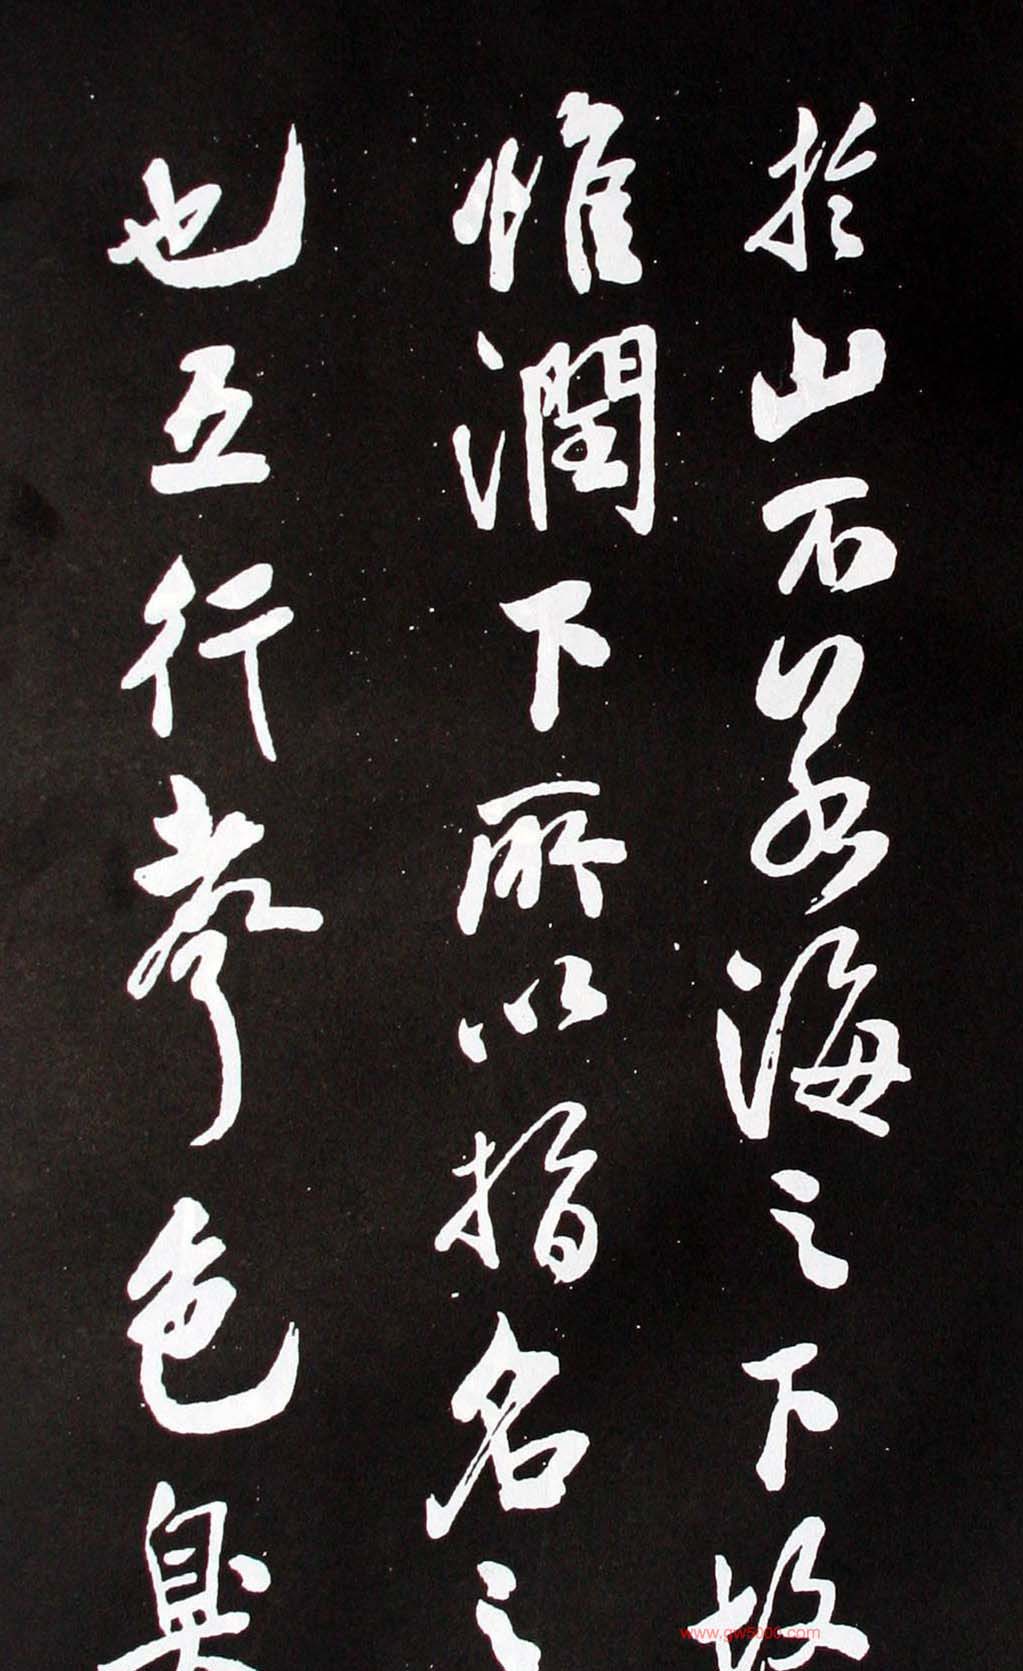 於山不若海之下故
惟潤下所以指名之
也五行孝色臭
www.gw5000.com